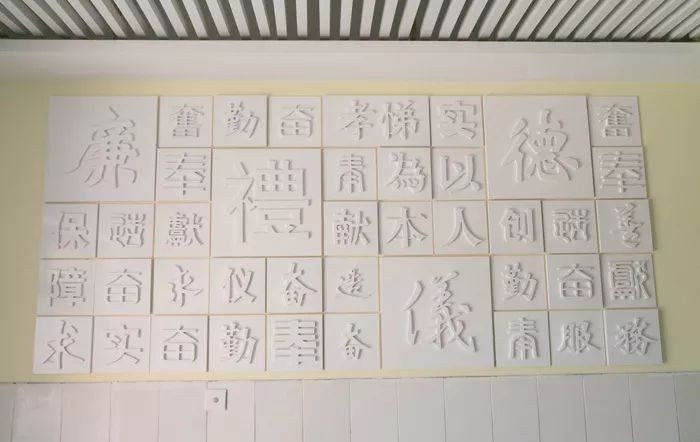 廉奮勤奋孝悌实德奮
奉禮青為以奉
保造獻獻本人创造
障奋永仪奋造儀勤奋獻
求实奋勤奉奋青服務